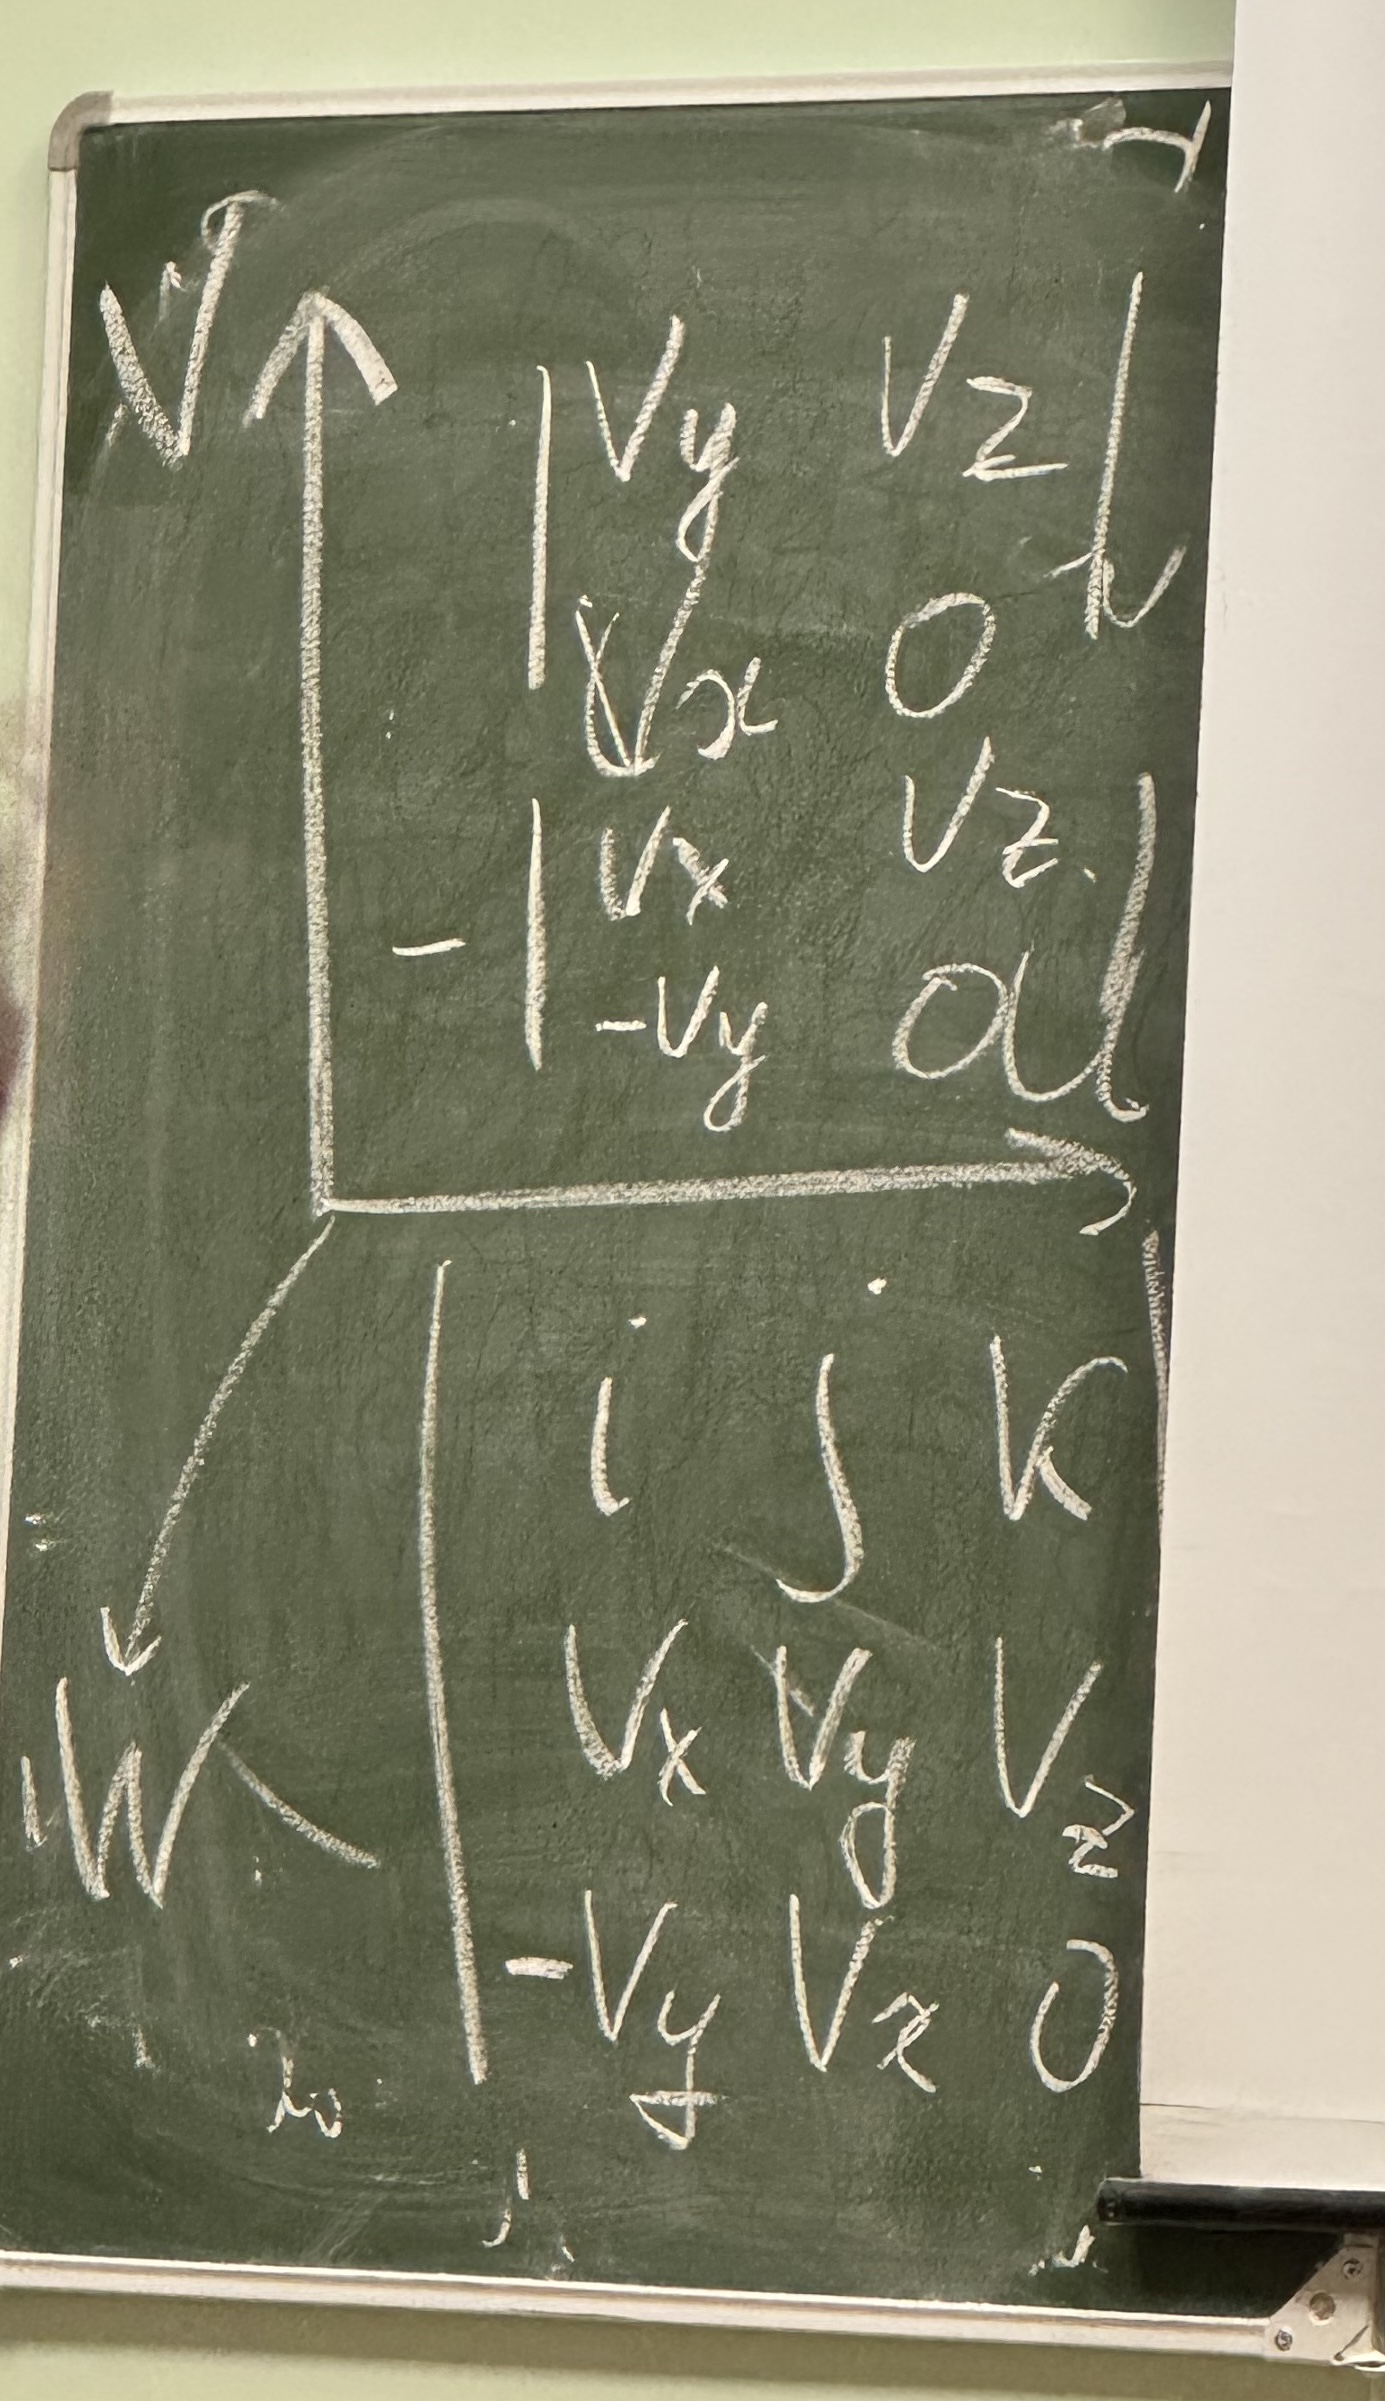 V
| Vy Vz |
Vx 0
- | Vx Vz |
-Vy 0
| i j k
Vx Vy Vz
W
-Vy Vx 0